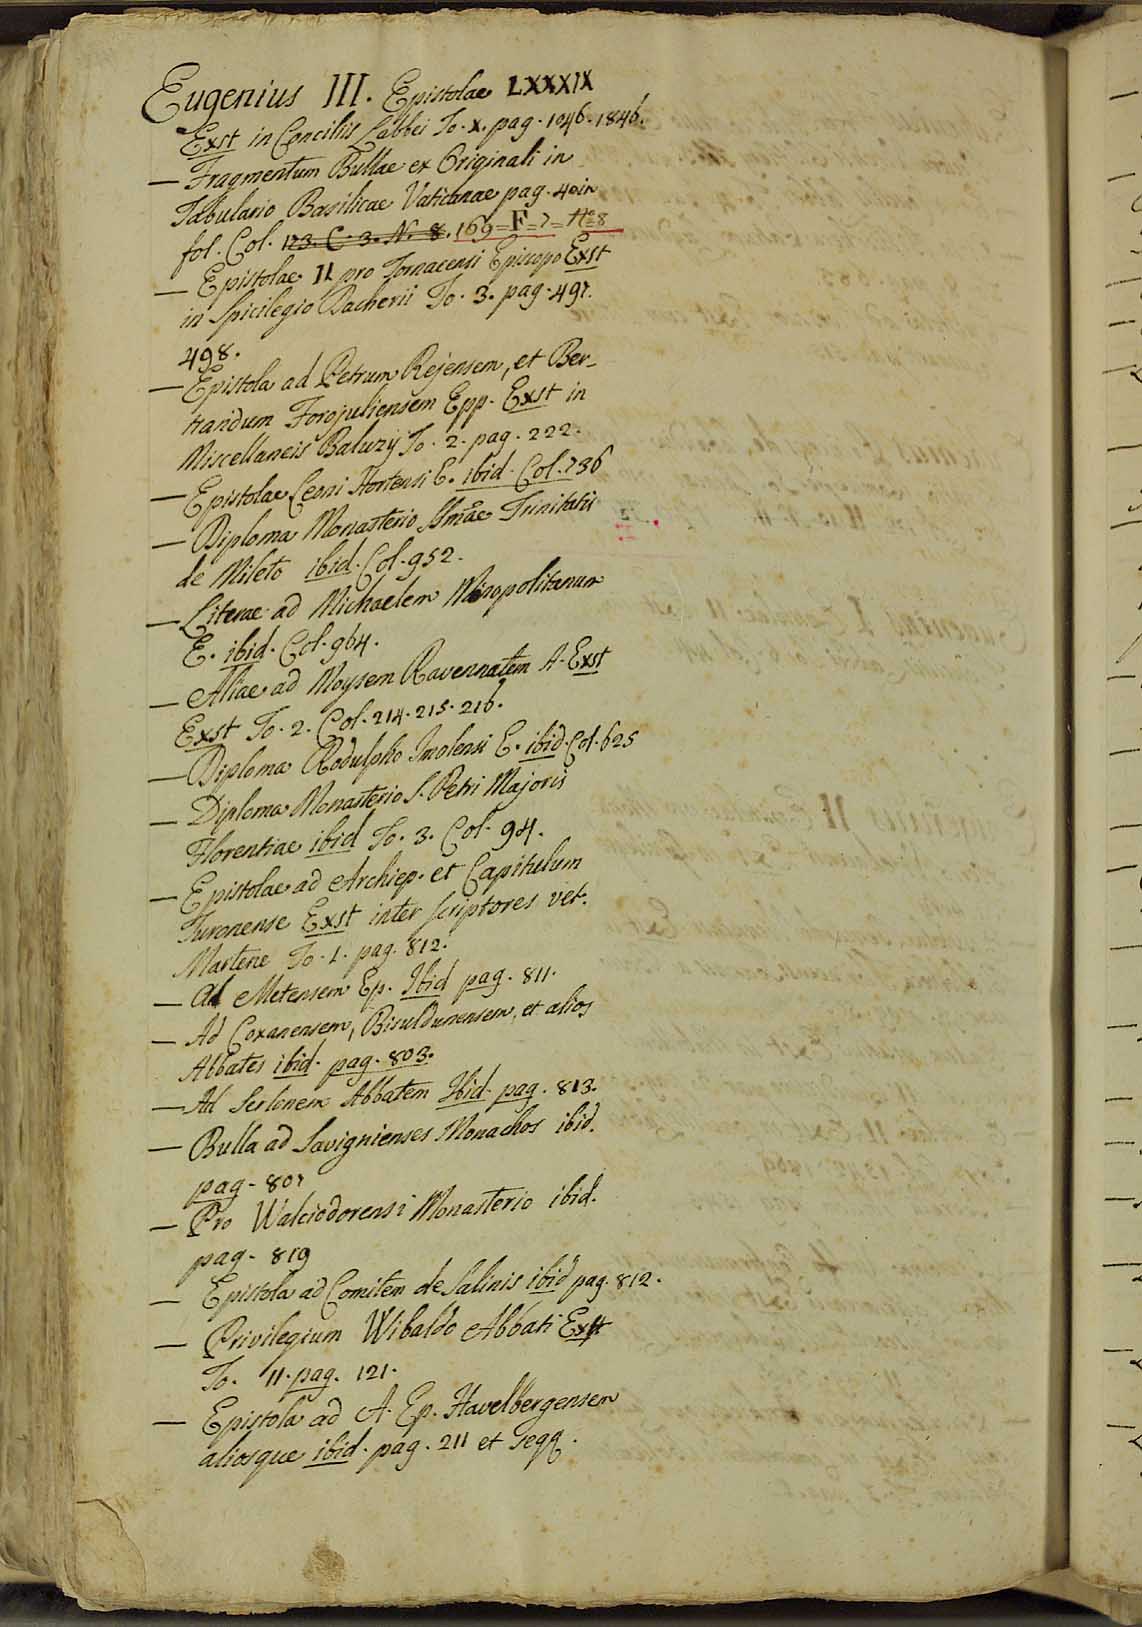 Eugenius III. Epistolae LXXXIX
Exst in Conciliis Labbei To. X. pag. 1046. 1846.
— Fragmentum Bullae ex Originali in
Tabulario Basilicae Vaticanae pag. 40 in
fol. Col. 123. C. 3. N. 8. 169 = F = 7 = No 8
— Epistolae II pro Tornacensi Episcopo Exst
in Spicilegio Dacherii To. 3. pag. 497.
498.
— Epistola ad Petrum Rejensem, et Ber-
trandum Forojuliensem Epp. Exst in
Miscellaneis Baluzij To. 2. pag. 222.
— Epistolae Leoni Hortensi E. ibid. Col. 736
— Diploma Monasterio SSmae Trinitatis
de Mileto ibid. Col. 952.
— Literae ad Michaelem
E. ibid. Col. 964.
— Aliae ad Moysem Ravennatem A. Exst
Exst To. 2. Col. 214. 215. 216.
— Diploma Rodulpho Imolensi E. ibid. Col. 625
— Diploma Monasterio S. Petri Majoris
Florentiae ibid To. 3. Col. 94.
— Epistolae ad Archiep. et Capitulum
Turonense Exst inter scriptores vet.
Martene To. 1. pag. 812.
— Ad Metensem Ep. Ibid pag. 811.
— Ad Coxanensem, Bisuldunensem, et alios
Abbates ibid. pag. 803.
— Ad Serlonem Abbatem Ibid. pag. 813.
— Bulla ad Savignienses Monachos ibid.
pag. 807
— Pro Walciodorensi Monasterio ibid.
pag. 819
— Epistola ad Comitem de Salinis ibid pag. 812.
— Privilegium Wibaldo Abbati Exst
To. 11. pag. 121.
— Epistola ad A. Ep. Havelbergensem
aliosque ibid. pag. 211 et seqq.